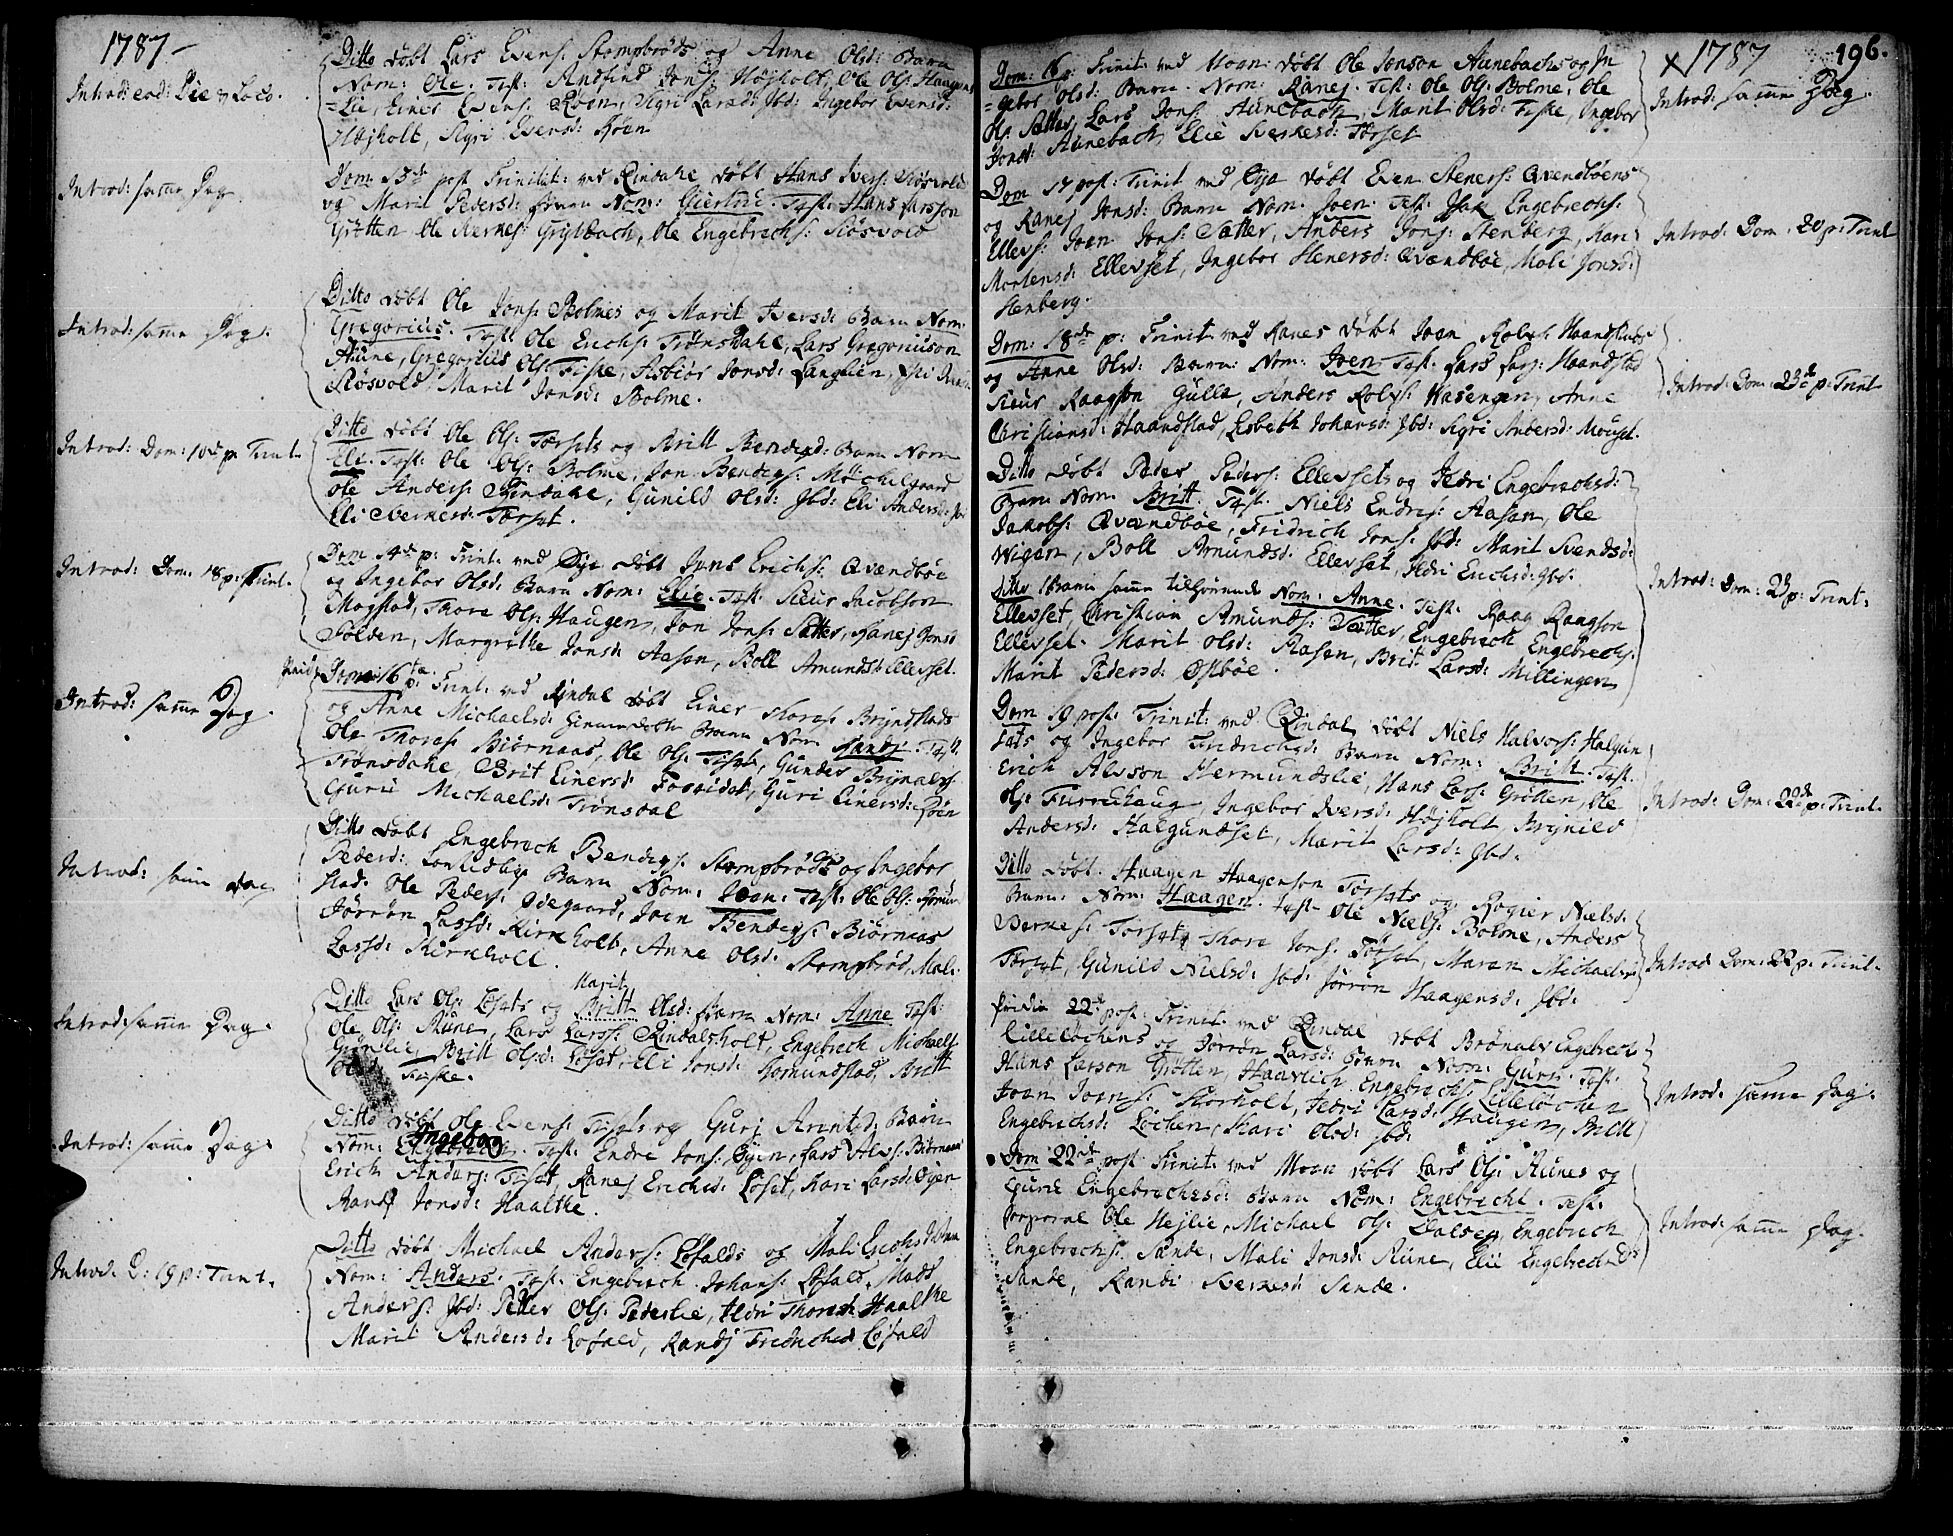 1787-
Introd: eod: Die & Loco.
Ditto döbt Lars Evens: Stompbröds og Anne Olsd: Barn
Nom: Ole. Test: Andfind Jons: Højholt, Ole Ols: Haugen
=Lie, Einer Evens: Röen, Sigri Larsd: Ibd: Ingebor Evensd:
Højholt, Sigri Evensd: Röen
Introd: samme Dag.
Dom 13de post Trinitat: ved Rindahl döbt Hans Ivers: Röswolds
og Marit Pedersd: Barn Nom: Giertrud Test: Hans Larsson
Grötten Ole Bernes: Grytbach, Ole Engebrechs: Röswold
Introd: samme Dag.
Ditto döbt Ole Jons: Bolmes og Marit Iversd: Barn Nom:
Gregorius. Test: Ole Erichs: Trönsdahl, Lars Gregoriuson
Aune, Gregorius Ols: Fiske, Asbiör Jonsd: Langlien,
Röswold Marit Jonsd: Bolme.
Introd: Dom: 18de p: Trint.
Ditto döbt Ole Ols: Torsets og Britt Bendixd: Barn Nom
Eli. Test: Ole Ols: Bolme, Jon Bendixs: Möchelgaard
Ole Anders: Rindahl, Gunild Olsd: Ibd: Eli Andersd: Ibd
Eli Sverkesd: Torset.
Introd: Dom: 18 p: Trint.
Dom 14de p: Trint: ved Öye döbt Jens Erichs: Qvændböe
og Ingebor Olsd: Barn Nom: Elie. Test: Sieur Jacobson
Mogstad, Thore Ols: Haugen, Jon Jons: Sætter, Ranej Jonsd
Solden, Margrethe Jonsd: Aasen, Boll Amundsd: Ellevset.
Introd: samme Dag.
Dom: 16ta p: Trint: ved Rindal döbt Einer Thores: Bryndstads
og Anne Michaelsd: hiemmedöbte Barn Nom Randi. Test.
Ole Thores: Biörnaas, Ole Ols: Tiset, Gunder Brynilds:
Trönsdahl, Brit Einersd: Fossidet, Guri Einersd: Röen
Guru Michaelsd: Trönsdal
Introd: samme dag
Ditto döbt Engebrech Bendixs: Stompbröds og Ingebor
Pedersd: Barn Nom: Joen: Test: Ole Ols: Romun
stad. Ole Peders: Ödegaard, Joen Bendixs: Biörnaas
Jörrön Lassd: Kirkholt, Anne Olsd: Stompbröd, Mali
Lassd: Kirkholt.
Introd: samme Dag.
Marit
Ditto Lars Ols: Löfets og Britt Olsd: Barn Nom: Anne Test:
Ole Ols: Aune, Lars Larss: Rindalsholt, Engebrech Michaels
Gunlie, Britt Olsd: Löfet, Eli Jonsd: Romundstad, Britt
Fiske.
Introd: samme Dag:
Ditto döbt Ole Evens: Tisets og Gurj Arntsd: Barn
Ingebor
Nom: Test. Endre Jons: Öyen, Lars Alfs: Biörnaas
Erich Anders: Tiset, Ranej Erichsd: Löset, Kari Larsd: Öyen
Randj Jonsd: Haaltke.
Introd. D: 19 p: Trint.
Ditto döbt Michael Anders: Löfalds og Mali Erichsd: Barn
Nom: Anders. Test. Engebrech Johans: Löfald, Mads
Anders: Ibd: Petter Ols: Pederlie, Ildri Thoresd: Haaltke
Marit Andersd: Löfald, Randj Fridrichsd: Löfald
× 1787
196.
Dom: 16 p: Trinit: ved Moen: döbt Ole Jonson Aunebachs og In
=gebor Olsd: Barn. Nom: Ranej. Test: Ole Ols: Bolme, Ole
Ols Sætter, Lars Jons: Aunebach, Marit Olsd: Fiske, Ingebor
Jonsd: Aunebach, Elie Sverkesd: Torset
Introd: samme Dag.
Dom 17 post: Trinit ved Öye döbt Even Steners: Qvendböens
og Ranej Jonsd: Barn Nom: Joen. Test. Isak Engebrechs:
Ellevs: Joen Jons: Sætter, Anders Jons: Stenberg, Kari
Mortensd: Ellevset, Ingebor Stenersd: Qvændböe, Mali Jonsd:
Stenberg.
Introd: Dom: 20 p: Trint
Dom: 18de p: Trinit ved Ranes döbt Joen Rolvs: Haandstads
og Anne Olsd: Barn: Nom: Joen Test. Lars Lars: Haandstad
Sieur Raagson Gulle, Anders Rolvs: Wasengen, Anne
Christiansd: Haandstad, Lisbeth Johansd: Ibd: Sigri Andersd: Mouset.
Introd: Dom: 23de p: Trint
Ditto döbt Peder Peders: Ellevsets og Ildri Engebrechsd:
Barn Nom. Britt. Test. Niels Endres: Aasen, Ole
Jakobs: Qvændböe, Fridrich Jons: Ibd: Marit Svendsd:
Wigen, Boll Amundsd: Ellevset, Ildri Erichsd: Ibd:
ditto Barn samme tilhörende Nom: Anne. Test. Raag Raagson
Ellevset, Christian Amunds: Sætter, Engebrech Engebrechs:
Ellevset. Marit Olsd: Aasen, Brit Larsd: Millingen
Marit Pedersd: Östböe.
Introd: Dom: 23 p: Trint:
Dom 19 post: Trinit: ved Rindal döbt Niels Halvors: Halgun
sets og Ingebor Fridrichsd: Barn Nom: Britt. Test.
Erich Alfsson Hermundslie, Hans Lars: Grötten, Ole
Ols: Furruhaug, Ingebor Iversd: Højholt, Brynild
Andersd: Halgundset, Marit Larsd: Ibd:
Introd: Dom: 22de p: Trint.
Ditto döbt. Haagen Haagenson Torsets og Rogier Nielsd:
Barn: Nom: Haagen. Test- Ole Niels: Bolme, Anders
Bernes: Torset, Thore Jons: Torset, Maren Michaelsd:
Torset, Gunild Nielsd: Ibd: Jörrön Haagensd: Ibd:
Introd Dom: 22 p: Trint.
Pridie 22de post: Trinit: ved Rindal döbt Brönalv Engebrech:
Lillelöchens og Jorrön Larsd: Barn Nom: Guru. Test.
Hans Larson Grötten, Haavlich Engebrechs: Lillelöchen
Joen Joens: Storholt, Ildri Larsd: Haugen, Britt
Engebrechsd: Löchen, Kari Olsd: Ibd:
Introd: samme Dag.
Dom 22de post Trinit: ved Moen döbt Lars Ols: Aunes og
Gurie Engebrechtsd: Barn Nom: Engebrecht. Test.
Corporal Ole Hejlie, Michael Ols: Dalsegg, Engebrech
Engebrechs: Sande, Mali Jonsd: Aune, Elie Engebrechtsdr
Sande, Randi Sverkesd: Sande.
Introd: samme Dag.